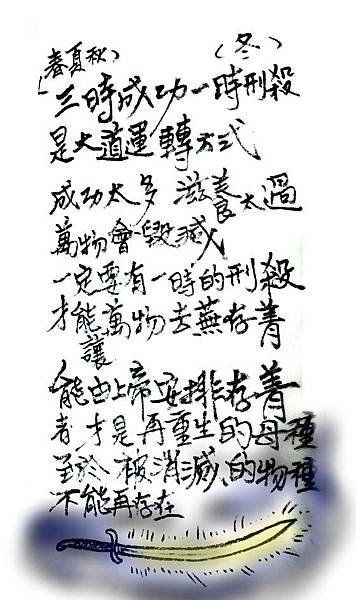 (春夏秋) (冬)
三時成功一時刑殺
是大道運轉方式
成功太多 滋養太過
萬物會毀滅
一定要有一時的刑殺
才能讓萬物去蕪存菁
能由上帝安排存菁
者才是再重生的母種
至於被消滅的物種
不能再存在